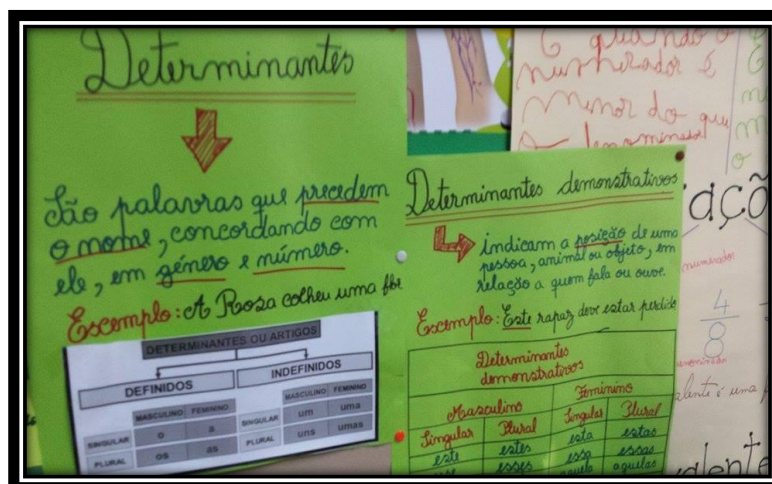 Determinantes
São palavras que precedem
o nome, concordando com
ele, em género e número.
Exemplo: A Rosa colheu uma flor
DETERMINANTES OU ARTIGOS
DEFINIDOS
INDEFINIDOS
MASCULINO FEMININO
SINGULAR o a
PLURAL os as
MASCULINO FEMININO
SINGULAR um uma
PLURAL uns umas
Determinantes demonstrativos
indicam a posição de uma
pessoa, animal ou objeto, em
relação a quem fala ou ouve.
Exemplo: Este rapaz deve estar perdido
Determinantes
demonstrativos
Masculino Feminino
Singular Plural Singular Plural
este estes esta estas
esse esses essa essas
aquela aquelas
É quando o
numerador é
menor do que
o denominador
numerador
4
8
é uma